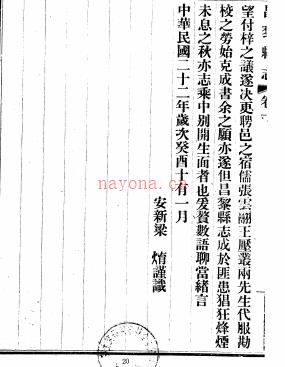 昌黎縣志 卷
望付梓之議遂決更聘邑之宿儒張雲翮王壓叢兩先生代服勘
校之勞始克成書余之願亦遂但昌黎縣志成於匪患猖狂烽煙
未息之秋亦志乘中別開生面者也爰贅數語聊當緒言
中華民國二十二年歲次癸酉十有一月
安新梁 焴謹識
nayona.cn
20